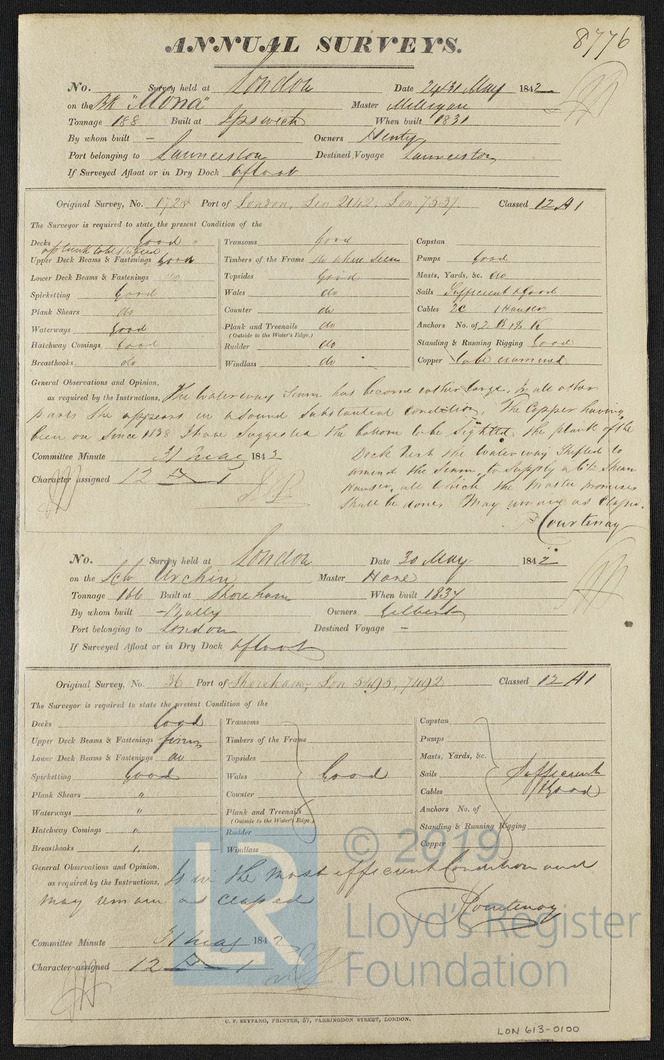 ANNUAL SURVEYS. 8776
No. Survey held at London Date 24 & 31 May 1842
on the Bk "Mona" Master Milligan
Tonnage 188 Built at Ipswich When built 1831
By whom built - Owners Henty
Port belonging to Launceston Destined Voyage Launceston
If Surveyed Afloat or in Dry Dock Afloat
Original Survey, No. 1728 Port of London, Lon 2142, Lon 7537. Classed 12 A1
The Surveyor is required to state the present Condition of the
Decks Good
Upper Deck Beams & Fastenings Good
Lower Deck Beams & Fastenings do
Spirketting Good
Plank Shears do
Waterways Good
Hatchway Comings Good
Breasthooks do
Transoms Good
Timbers of the Frame do where seen
Topsides Good
Wales do
Counter do
Plank and Treenails do
(Outside to the Water's Edge.)
Rudder do
Windlass do
Capstan
Pumps Good
Masts, Yards, &c. do
Sails Sufficient & Good
Cables 2C 1 Hawser
Anchors No. of 2 B 1 S K
Standing & Running Rigging Good
Copper to be examined
General Observations and Opinion,
as required by the Instructions, The Waterway Seam has become rather large. In all other
parts She appears in a Sound Substantial condition. The Copper having
been on Since 1838 I have Suggested the bottom to be Sighted, the plank of the
Deck next the Waterway Shifted to
amend the Seam, to Supply a
Hawser, all which the Master promises
Shall be done. May remain as Classed.
Courtenay
Committee Minute 31 May 1842
Character assigned 12 A 1
No. Survey held at London Date 30 May 1842
on the Sch Urchin Master Hare
Tonnage 166 Built at Shoreham When built 1837
By whom built - Owners Gilbert
Port belonging to London Destined Voyage -
If Surveyed Afloat or in Dry Dock Afloat
Original Survey, No. 36 Port of Shoreham, Lon 5495, 7492 Classed 12 A1
The Surveyor is required to state the present Condition of the
Decks Good
Upper Deck Beams & Fastenings firm
Lower Deck Beams & Fastenings do
Spirketting Good
Plank Shears "
Waterways "
Hatchway Comings "
Breasthooks "
Transoms
Timbers of the Frame
Topsides
Wales Good
Counter
Plank and Treenails
(Outside to the Water's Edge.)
Rudder
Windlass
Capstan
Pumps
Masts, Yards, &c.
Sails Sufficient
Cables & Good
Anchors No. of
Standing & Running Rigging
Copper
General Observations and Opinion,
as required by the Instructions, Is in the most efficient Condition and
may remain as Classed
Courtenay
Committee Minute 31 May 1842
Character assigned 12 A 1
C. F. SEYFANG, PRINTER, 57, FARRINGDON STREET, LONDON.
LON 613-0100
LR © 2019
Lloyd's Register
Foundation